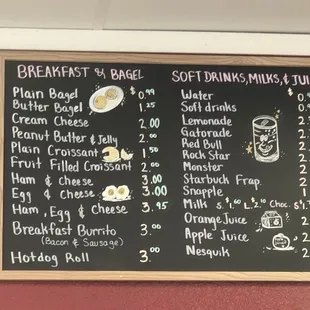 BREAKFAST & BAGEL
Plain Bagel $0.99
Butter Bagel 1.25
Cream Cheese 2.00
Peanut Butter & Jelly 2.00
Plain Croissant 1.50
Fruit Filled Croissant 2.00
Ham & cheese 3.00
Egg & cheese 3.00
Ham, Egg & Cheese 3.95
Breakfast Burrito 3.00
(Bacon & Sausage)
Hotdog Roll 3.00
SOFT DRINKS, MILKS, & JUI
Water
Soft drinks
Lemonade
Gatorade
Red Bull
Rock Star
Monster
Starbuck Frap.
Snapple
Milk S $1.60 L $2.10 Choc.
Orange Juice
Apple Juice
Nesquik